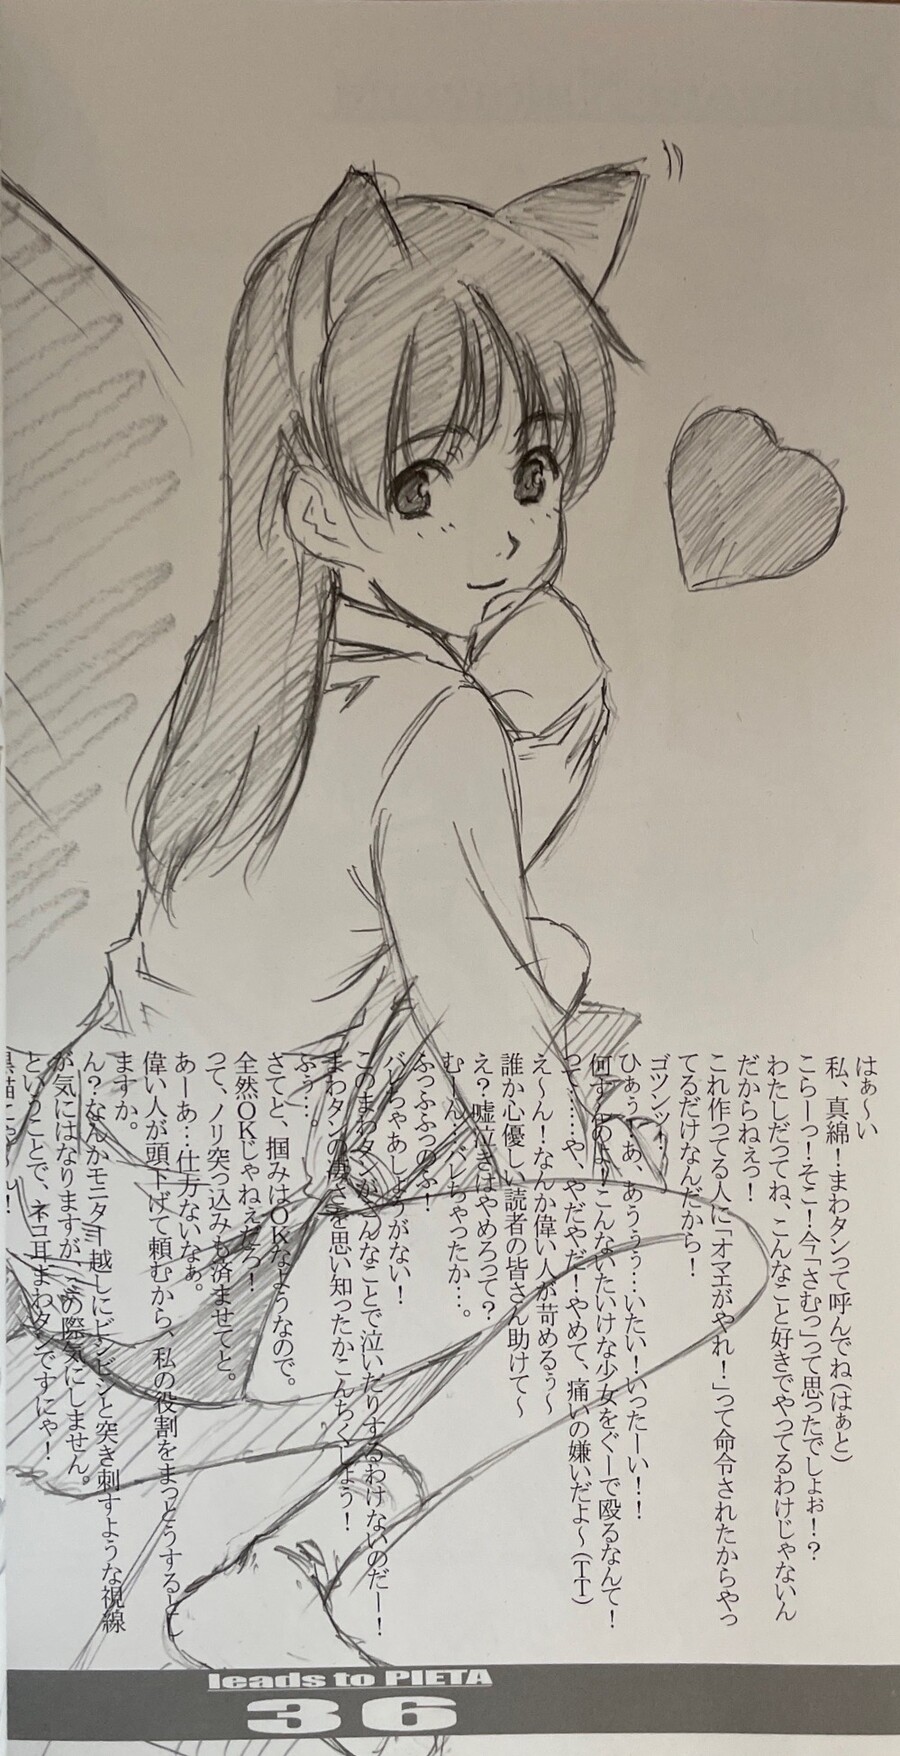 はぁ～い
私、真綿！まわタンって呼んでね(はぁと)
こらーっ！そこ！今「さむっ」って思ったでしょぉ！？
わたしだってね、こんなこと好きでやってるわけじゃないん
だからねぇっ！
これ作ってる人に「オマエがやれ！」って命令されたからやっ
てるだけなんだから！
ゴツンッ！
ひぁぅ…あ、あううぅ…いたい！いったーい！！
何すんのよ！こんないたいけな少女をぐーで殴るなんて！
って……や、やだやだ！やめて、痛いの嫌いだよ～(TT)
え～ん！なんか偉い人が苛めるぅ～
誰か心優しい読者の皆さん助けて～
え？嘘泣きはやめろって？
むーん…バレちゃったか…。
ふっふふっのふ！
バレちゃあしょうがない！
このまわタンがそんなことで泣いたりするわけないのだー！
まわタンの凄さを思い知ったかこんちくしょう！
ふぅ…。
さてと、掴みはOKなようなので。
全然OKじゃねぇだろ！
って、ノリ突っ込みも済ませてと。
あーあ…仕方ないなぁ。
偉い人が頭下げて頼むから、私の役割をまっとうするとし
ますか。
ん？なんかモニター越しにビンビンと突き刺すような視線
が気にはなりますが、この際気にしません。
ということで、ネコ耳まわタンですにゃ！
leads to PIETA
36